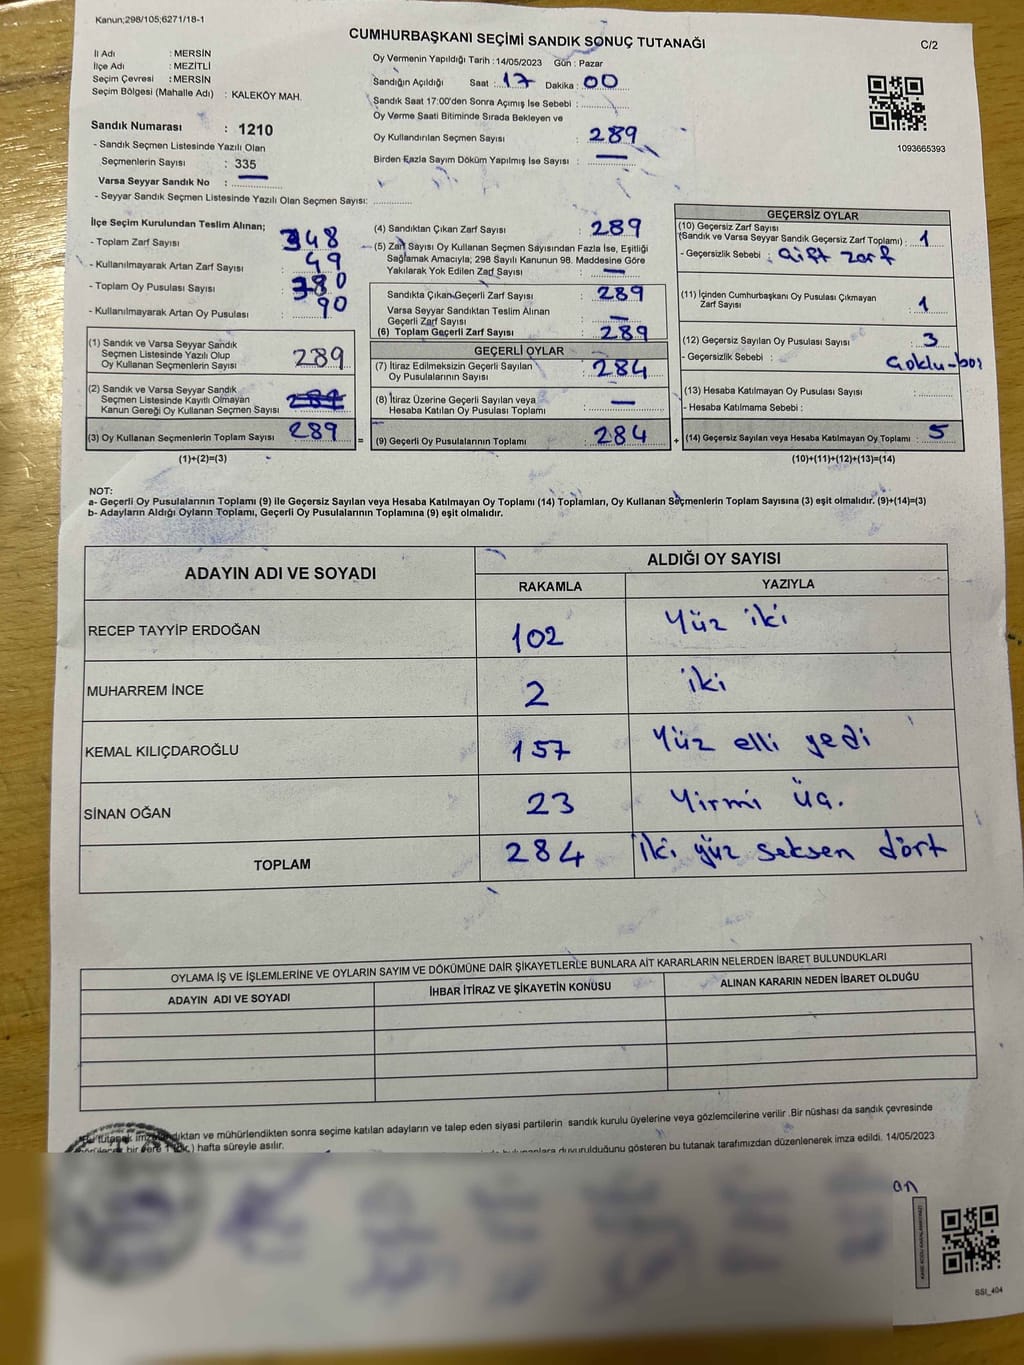 Kanun;298/105;6271/18-1
CUMHURBAŞKANI SEÇİMİ SANDIK SONUÇ TUTANAĞI
C/2
İl Adı : MERSİN
İlçe Adı : MEZİTLİ
Seçim Çevresi : MERSİN
Seçim Bölgesi (Mahalle Adı) : KALEKÖY MAH.
Oy Vermenin Yapıldığı Tarih : 14/05/2023 Gün : Pazar
Sandığın Açıldığı Saat : 17 Dakika : 00
Sandık Saat 17:00'den Sonra Açımış İse Sebebi :
Oy Verme Saati Bitiminde Sırada Bekleyen ve
Oy Kullandırılan Seçmen Sayısı : 289
Birden Fazla Sayım Döküm Yapılmış İse Sayısı : —
1093665393
Sandık Numarası : 1210
- Sandık Seçmen Listesinde Yazılı Olan
Seçmenlerin Sayısı : 335
Varsa Seyyar Sandık No : —
- Seyyar Sandık Seçmen Listesinde Yazılı Olan Seçmen Sayısı:
İlçe Seçim Kurulundan Teslim Alınan;
- Toplam Zarf Sayısı : 348
- Kullanılmayarak Artan Zarf Sayısı : 49
- Toplam Oy Pusulası Sayısı : 380
- Kullanılmayarak Artan Oy Pusulası : 90
(1) Sandık ve Varsa Seyyar Sandık
Seçmen Listesinde Yazılı Olup
Oy Kullanan Seçmenlerin Sayısı : 289
(2) Sandık ve Varsa Seyyar Sandık
Seçmen Listesinde Kayıtlı Olmayan
Kanun Gereği Oy Kullanan Seçmen Sayısı :
(3) Oy Kullanan Seçmenlerin Toplam Sayısı : 289 =
(1)+(2)=(3)
(4) Sandıktan Çıkan Zarf Sayısı : 289
(5) Zarf Sayısı Oy Kullanan Seçmen Sayısından Fazla İse, Eşitliği
Sağlamak Amacıyla; 298 Sayılı Kanunun 98. Maddesine Göre
Yakılarak Yok Edilen Zarf Sayısı : —
Sandıkta Çıkan Geçerli Zarf Sayısı : 289
Varsa Seyyar Sandıktan Teslim Alınan
Geçerli Zarf Sayısı : —
(6) Toplam Geçerli Zarf Sayısı : 289
GEÇERLİ OYLAR
(7) İtiraz Edilmeksizin Geçerli Sayılan
Oy Pusulalarının Sayısı : 284
(8) İtiraz Üzerine Geçerli Sayılan veya
Hesaba Katılan Oy Pusulası Toplamı : —
(9) Geçerli Oy Pusulalarının Toplamı : 284 +
GEÇERSİZ OYLAR
(10) Geçersiz Zarf Sayısı
(Sandık ve Varsa Seyyar Sandık Geçersiz Zarf Toplamı) : 1
- Geçersizlik Sebebi : Çift zarf
(11) İçinden Cumhurbaşkanı Oy Pusulası Çıkmayan
Zarf Sayısı : 1
(12) Geçersiz Sayılan Oy Pusulası Sayısı : 3
- Geçersizlik Sebebi :
(13) Hesaba Katılmayan Oy Pusulası Sayısı :
- Hesaba Katılmama Sebebi :
(14) Geçersiz Sayılan veya Hesaba Katılmayan Oy Toplamı : 5
(10)+(11)+(12)+(13)=(14)
NOT:
a- Geçerli Oy Pusulalarının Toplamı (9) ile Geçersiz Sayılan veya Hesaba Katılmayan Oy Toplamı (14) Toplamları, Oy Kullanan Seçmenlerin Toplam Sayısına (3) eşit olmalıdır. (9)+(14)=(3)
b- Adayların Aldığı Oyların Toplamı, Geçerli Oy Pusulalarının Toplamına (9) eşit olmalıdır.
ADAYIN ADI VE SOYADI
ALDIĞI OY SAYISI
RAKAMLA YAZIYLA
RECEP TAYYİP ERDOĞAN 102 Yüz iki
MUHARREM İNCE 2 iki
KEMAL KILIÇDAROĞLU 157 Yüz elli yedi
SİNAN OĞAN 23 Yirmi üç.
TOPLAM 284 İki yüz seksen dört
OYLAMA İŞ VE İŞLEMLERİNE VE OYLARIN SAYIM VE DÖKÜMÜNE DAİR ŞİKAYETLERLE BUNLARA AİT KARARLARIN NELERDEN İBARET BULUNDUKLARI
ADAYIN ADI VE SOYADI İHBAR İTİRAZ VE ŞİKAYETİN KONUSU ALINAN KARARIN NEDEN İBARET OLDUĞU
tutanak imzalandıktan ve mühürlendikten sonra seçime katılan adayların ve talep eden siyasi partilerin sandık kurulu üyelerine veya gözlemcilerine verilir .Bir nüshası da sandık çevresinde
hafta süreyle asılır.
duyurulduğunu gösteren bu tutanak tarafımızdan düzenlenerek imza edildi. 14/05/2023
SSI_404